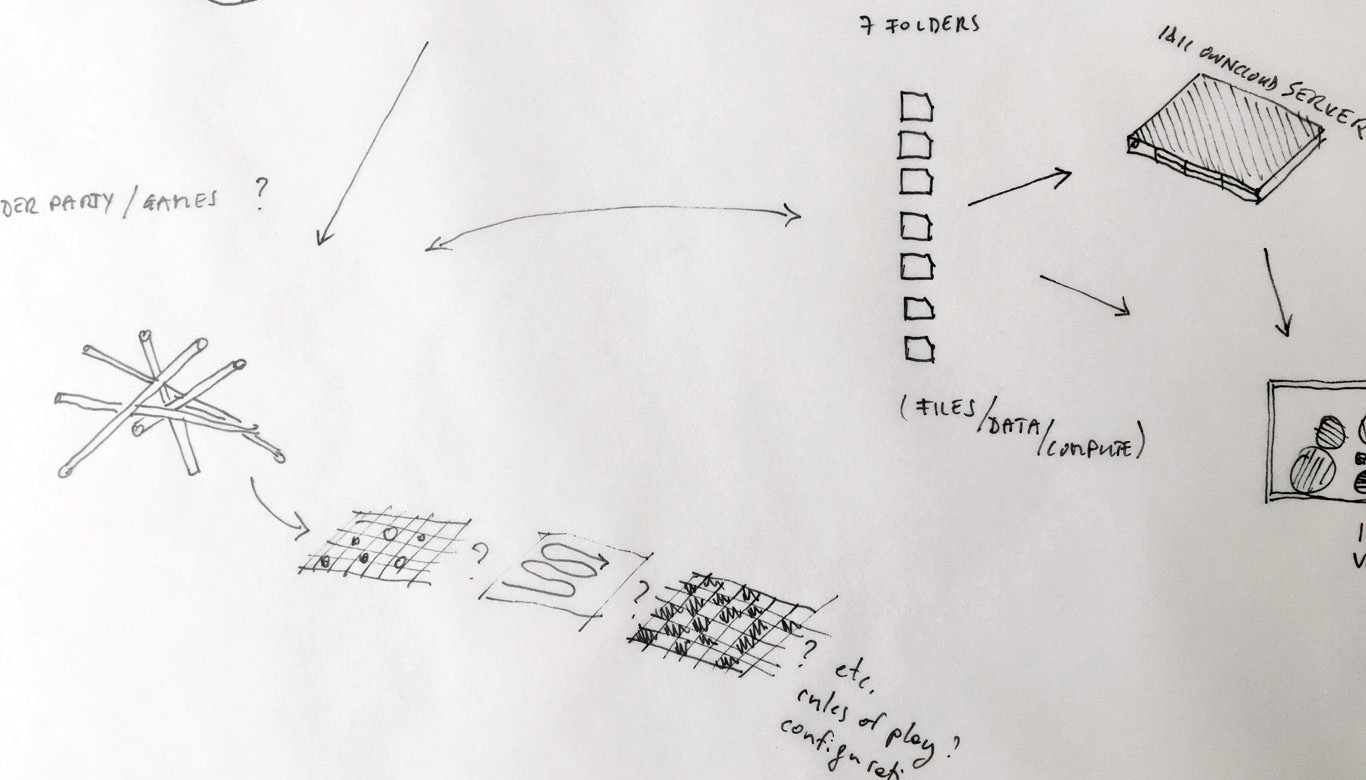 7 FOLDERS
OWNCLOUD SERVER
DER PARTY / GAMES ?
(FILES/DATA/COMPUTE)
?
?
? etc.
rules of play ?
configurati